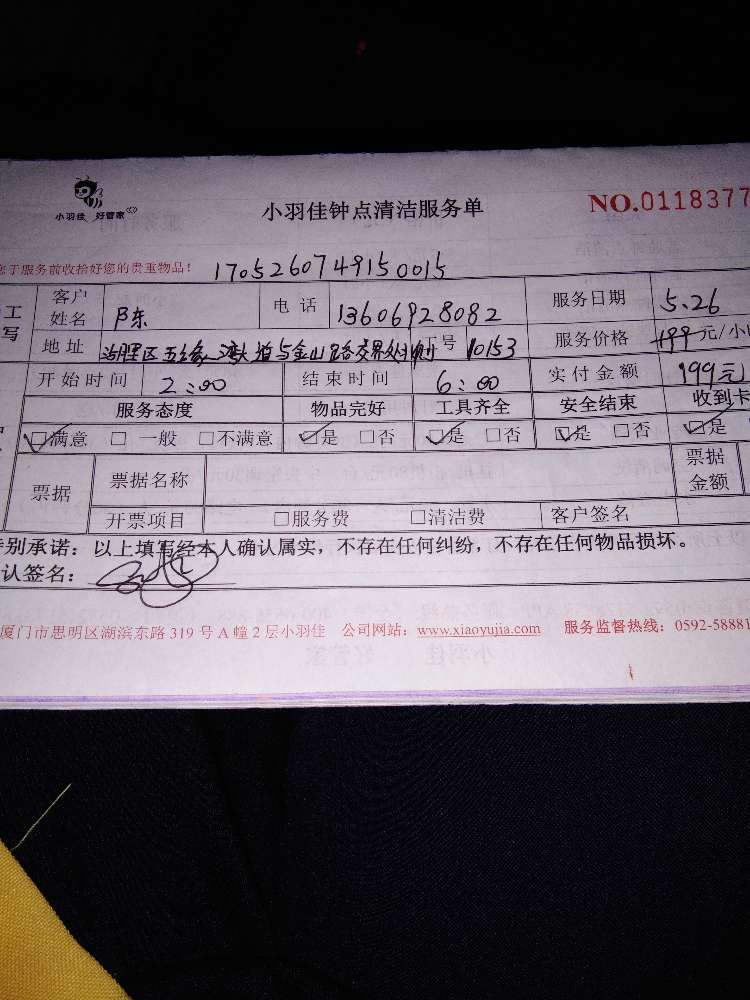 小羽佳 好管家
小羽佳钟点清洁服务单
NO.0118377
于服务前收拾好您的贵重物品! 1705260749150015
工 写
客户姓名 电话 13606928082 服务日期 5.26
地址 湖里区五缘湾大道与金山路交界处 工号 10153 服务价格 199 元/小
开始时间 2:00 结束时间 6:00 实付金额 199元
服务态度 物品完好 工具齐全 安全结束 收到卡
☑满意 □一般 □不满意 ☑是 □否 ☑是 □否 ☑是 □否 ☑是
票据 票据名称 票据金额
开票项目 □服务费 □清洁费 客户签名
别承诺:以上填写经本人确认属实,不存在任何纠纷,不存在任何物品损坏。
认签名:
厦门市思明区湖滨东路 319 号 A 幢 2 层小羽佳 公司网站:www.xiaoyujia.com 服务监督热线:0592-58881